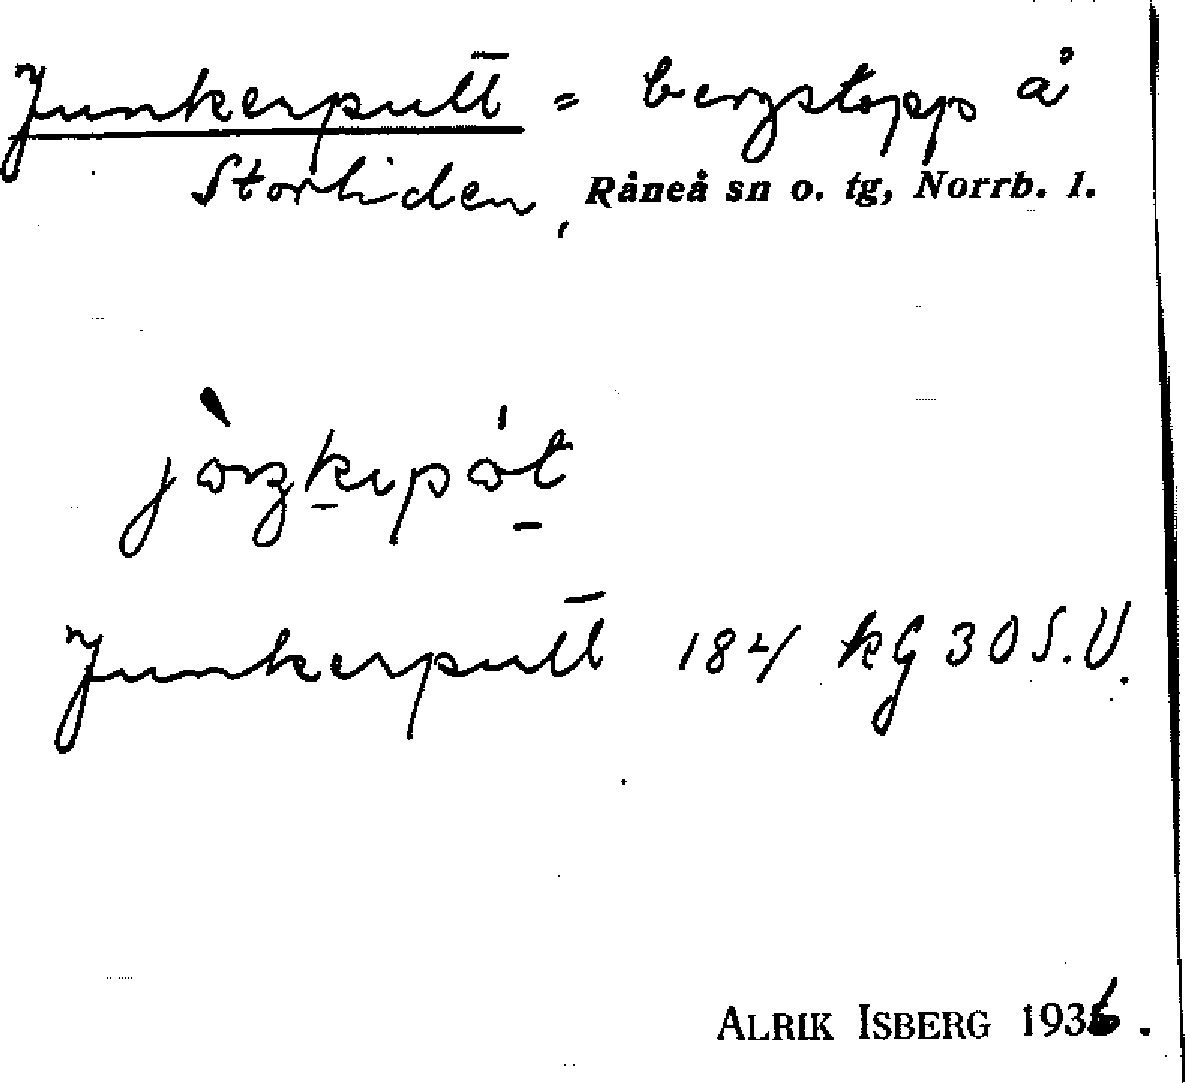 Junkerputt = bergstopp å
Storliden, Råneå sn o. tg, Norrb. l.
Junkerputt 184 kG 30 S.V.
ALRIK ISBERG 1936.